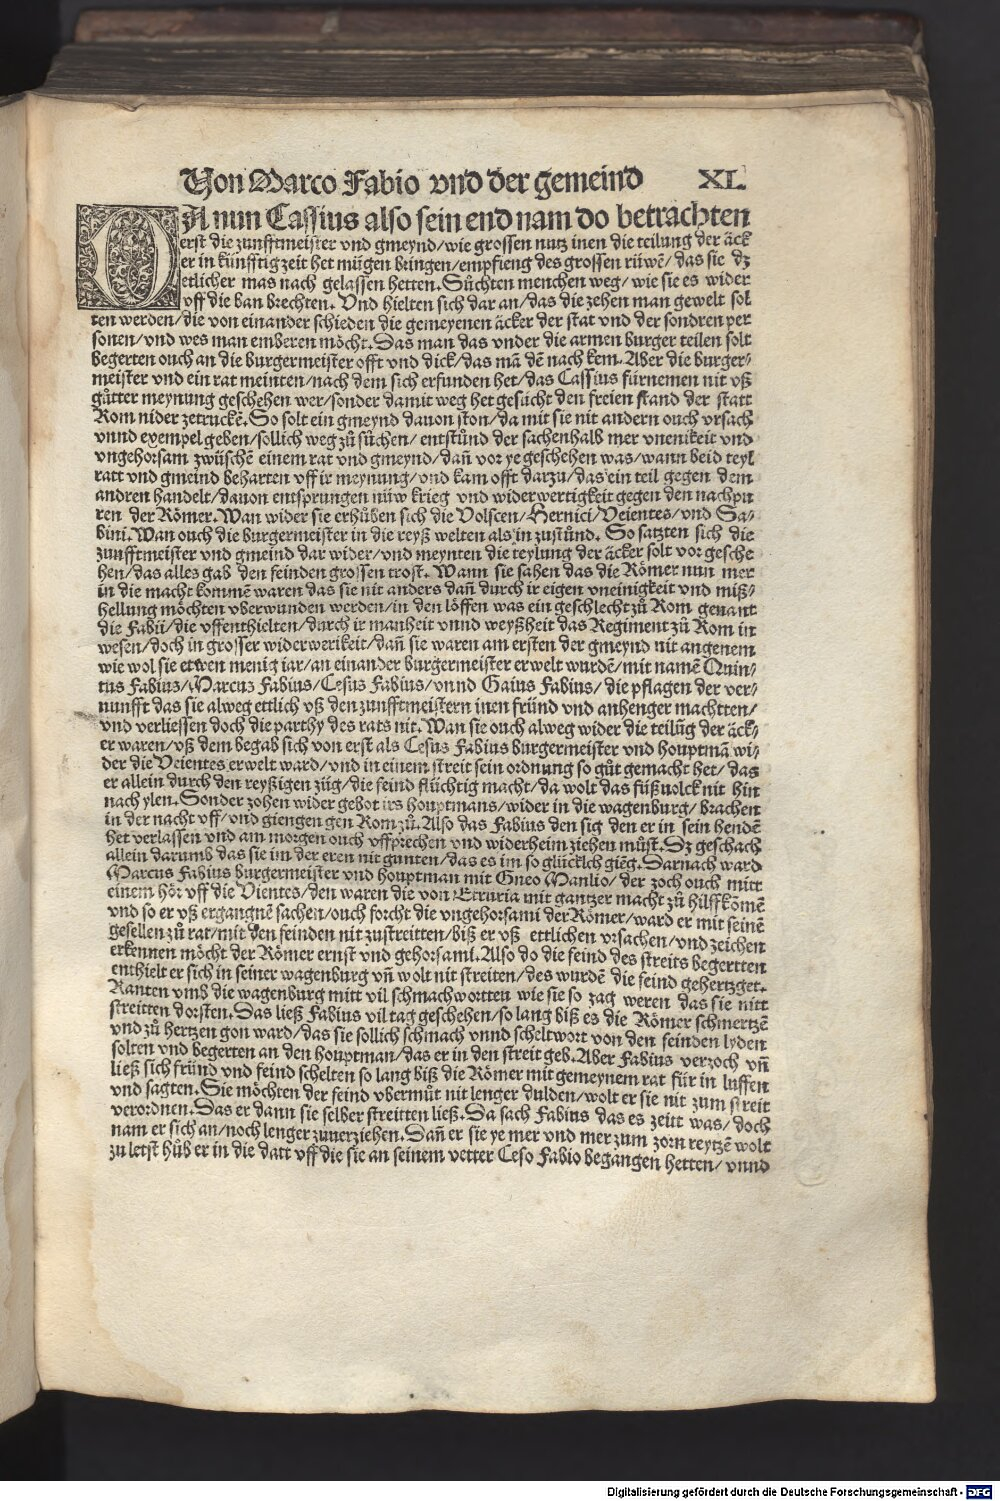 Von Marco Fabio vnd der gemeind XL.
DA nun Cassius also sein end nam do betrachten
erst die zunfftmeister vnd gmeynd/wie grossen nutz inen die teilung der äck
er in künfftig zeit het mügen bringen/empfieng des grossen rüwē/das sie dz
etlicher mas nach gelassen hetten. Sůchten menchen weg/wie sie es wider
vff die ban brechten. Vnd hielten sich dar an/das die zehen man gewelt sol
ten werden/die von einander schieden die gemeyenen äcker der stat vnd der sondren per
sonen/vnd wes man emberen möcht. Das man das vnder die armen burger teilen solt
begerten ouch an die burgermeister offt vnd dick/das mā dē nach kem. Aber die burger⸗
meister vnd ein rat meinten/nach dem sich erfunden het/das Cassius fürnemen nit vß
gůtter meynung geschehen wer/sonder damit weg het gesücht den freien stand der statt
Rom nider zetruckē. So solt ein gmeynd dauon ston/da mit sie nit andern ouch vrsach
vnnd exempel geben/sollich weg zů sůchen/entstünd der sachenhalb mer vnenikeit vnd
vngehorsam zwüschē einem rat vnd gmeynd/dañ vor ye geschehen was/wann beid teyl
ratt vnd gmeind beharten vff ir meynung/vnd kam offt darzu/das ein teil gegen dem
andren handelt/dauon entsprungen nüw krieg vnd widerwertigkeit gegen den nachpu
ren der Römer. Wan wider sie erhůben sich die Volscen/Hernici/Veientes/vnd Sa⸗
bini. Wan ouch die burgermeister in die reyß welten als in zustůnd. So satzten sich die
zunfftmeister vnd gmeind dar wider/vnd meynten die teylung der äcker solt vor gesche
hen/das alles gab den feinden grossen trost. Wann sie sahen das die Römer nun mer
in die macht kommē waren das sie nit anders dañ durch ir eigen vneinigkeit vnd miß⸗
hellung möchten vberwunden werden/in den löffen was ein geschlecht zů Rom genant
die Fabii/die vffenthielten/durch ir manheit vnnd weyßheit das Regiment zů Rom in
wesen/doch in grosser widerwerikeit/dañ sie waren am ersten der gmeynd nit angenem
wie wol sie etwen menig iar/an einander burgermeister erwelt wurdē/mit namē Quin⸗
tus Fabius/Marcus Fabius/Cesus Fabius/vnnd Gaius Fabius/die pflagen der ver⸗
nunfft das sie alweg ettlich vß den zunfftmeistern inen fründ vnd anhenger machtten/
vnd verliessen doch die parthy des rats nit. Wan sie ouch alweg wider die teilūg der äck⸗
er waren/vß dem begab sich von erst als Cesus Fabius burgermeister vnd houptmā wi⸗
der die Veientes erwelt ward/vnd in einem streit sein ordnung so gůt gemacht het/das
er allein durch den reyßigen züg/die feind flüchtig macht/da wolt das fůßuolck nit hin
nach ylen. Sonder zohen wider gebot irs houptmans/wider in die wagenburg/brachen
in der nacht vff/vnd giengen gen Rom zů. Also das Fabius den sig den er in sein hendē
het verlassen vnd am morgen ouch vffprechen vnd widerheim ziehen müst. Dz geschach
allein darumb das sie im der eren nit gunten/das es im so glücklch giēg. Darnach ward
Marcus Fabius burgermeister vnd houptman mit Gneo Manlio/der zoch ouch mitt
einem hör vff die Vientes/den waren die von Etruria mit gantzer macht zů hilff kōmē
vnd so er vß ergangnē sachen/ouch forcht die vngehorsami der Römer/ward er mit seinē
gesellen zů rat/mit den feinden nit zustreitten/biß er vß ettlichen vrsachen/vnd zeichen
erkennen möcht der Römer ernst vnd gehorsami. Also do die feind des streits begertten
enthielt er sich in seiner wagenburg vñ wolt nit streiten/des wurdē die feind gehertzget.
Ranten vmb die wagenburg mitt vil schmachwortten wie sie so zag weren das sie nitt
streitten dorsten. Das ließ Fabius vil tag geschehen/so lang biß es die Römer schmertzē
vnd zů hertzen gon ward/das sie sollich schmach vnnd scheltwort von den feinden lyden
solten vnd begerten an den houptman/das er in den streit geb. Aber Fabius verzoch vñ
ließ sich fründ vnd feind schelten so lang biß die Römer mit gemeynem rat für in luffen
vnd sagten. Sie möchten der feind vbermůt nit lenger dulden/wolt er sie nit zum streit
verordnen. Das er dann sie selber streitten ließ. Da sach Fabius das es zeitt was/doch
nam er sich an/noch lenger zuuerziehen. Dañ er sie ye mer vnd mer zum zorn reytzē wolt
zu letst hůb er in die datt vff die sie an seinem vetter Ceso Fabio begangen hetten/vnnd
Digitalisierung gefördert durch die Deutsche Forschungsgemeinschaft - DFG